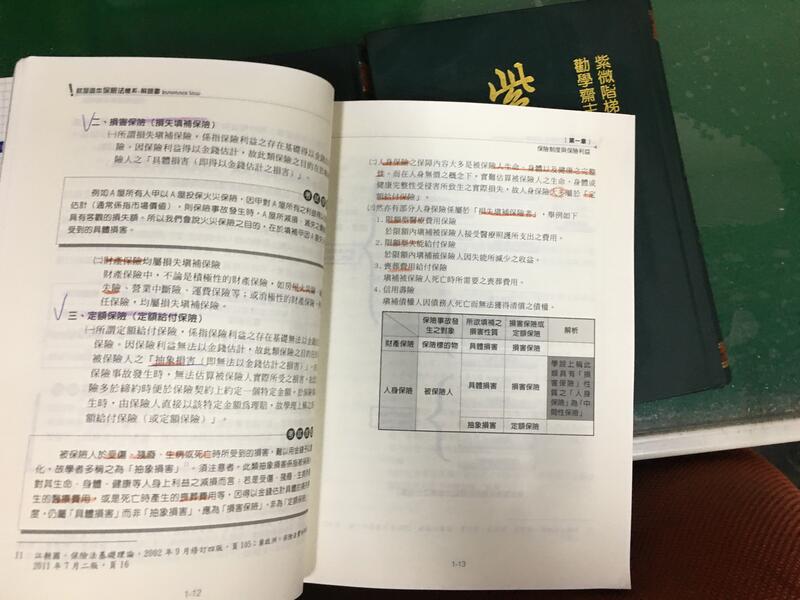 就是這本保險法體系+解題書
二、損害保險（損失填補保險）
㈠所謂損失填補保險，係指保險利益之存在基礎得以金錢
後。因保險利益得以金錢估計，故此類保險之目的在於
險人之「具體損害（即得以金錢估計之損害）」。
例如A屋所有人甲以A屋投保火災保險，因甲對A屋所有之利益得以
估計（通常係指市場價值），則保險事故發生時，A屋所減損、滅失之
具有客觀的損失額。所以我們會說火災保險之目的，在於填補甲因A屋
受到的具體損害。
㈡財產保險均屬損失填補保險
財產保險中，不論是積極性的財產保險，如房屋火災
失險、營業中斷險、運費保險等；或消極性的財產保險
任保險，均屬損失填補保險。
三、定額保險（定額給付保險）
㈠所謂定額給付保險，係指保險利益之存在基礎無法以金錢
後。因保險利益無法以金錢估計，故此類保險之目的在
被保險人之「抽象損害（即無法以金錢估計之損害）」。
險事故發生時，無法估算被保險人實際所受之損害，故
險多於締約時便於保險契約上約定一個特定金額，於保險
生時，由保險人直接以該特定金額為理賠，故學理上稱之
額給付保險（或定額保險）」。
被保險人於受傷、殘廢、生病或死亡時所受到的損害，難以用金錢予以
化，故學者多稱之為「抽象損害」。須注意者，此類抽象損害係指被保險人
對其生命、身體、健康等人身上利益之減損而言；若是受傷、殘廢、生病
生的醫療費用，或是死亡時產生的喪葬費用等，因得以金錢估計具體的
度，仍屬「具體損害」而非「抽象損害」，應為「損害保險」，非為「定額保險」
11 江朝國，保險法基礎理論，2002年9月修訂四版，頁105；
2011年7月二版，頁16
1-12
第一章
保險制度與保險利益
㈡人身保險之保障內容大多是被保險人生命、身體以及健康之完整
性。而在人身無價之概念下，實難估算被保險人之生命、身體或
健康完整性受侵害所致生之實際損失，故人身保險多屬於「定
額給付保險」。
㈢然亦有部分人身保險係屬於「損失填補保險者」，舉例如下
1. 限額型醫療費用保險
於限額內填補被保險人接受醫療照護所支出之費用。
2. 限額型失能給付保險
於限額內填補被保險人因失能所減少之收益。
3. 喪葬費用給付保險
填補被保險人死亡時所需要之喪葬費用。
4. 信用壽險
填補債權人因債務人死亡而無法獲得清償之債權。
保險事故發生之對象 所欲填補之損害性質 損害保險或定額保險 解析
財產保險 保險標的物 具體損害 損害保險
人身保險 被保險人 具體損害 損害保險 學說上稱此類具有「損害保險」性質之「人身保險」為「中間性保險」
抽象損害 定額保險
1-13
紫微階梯
勸學齋主
紫